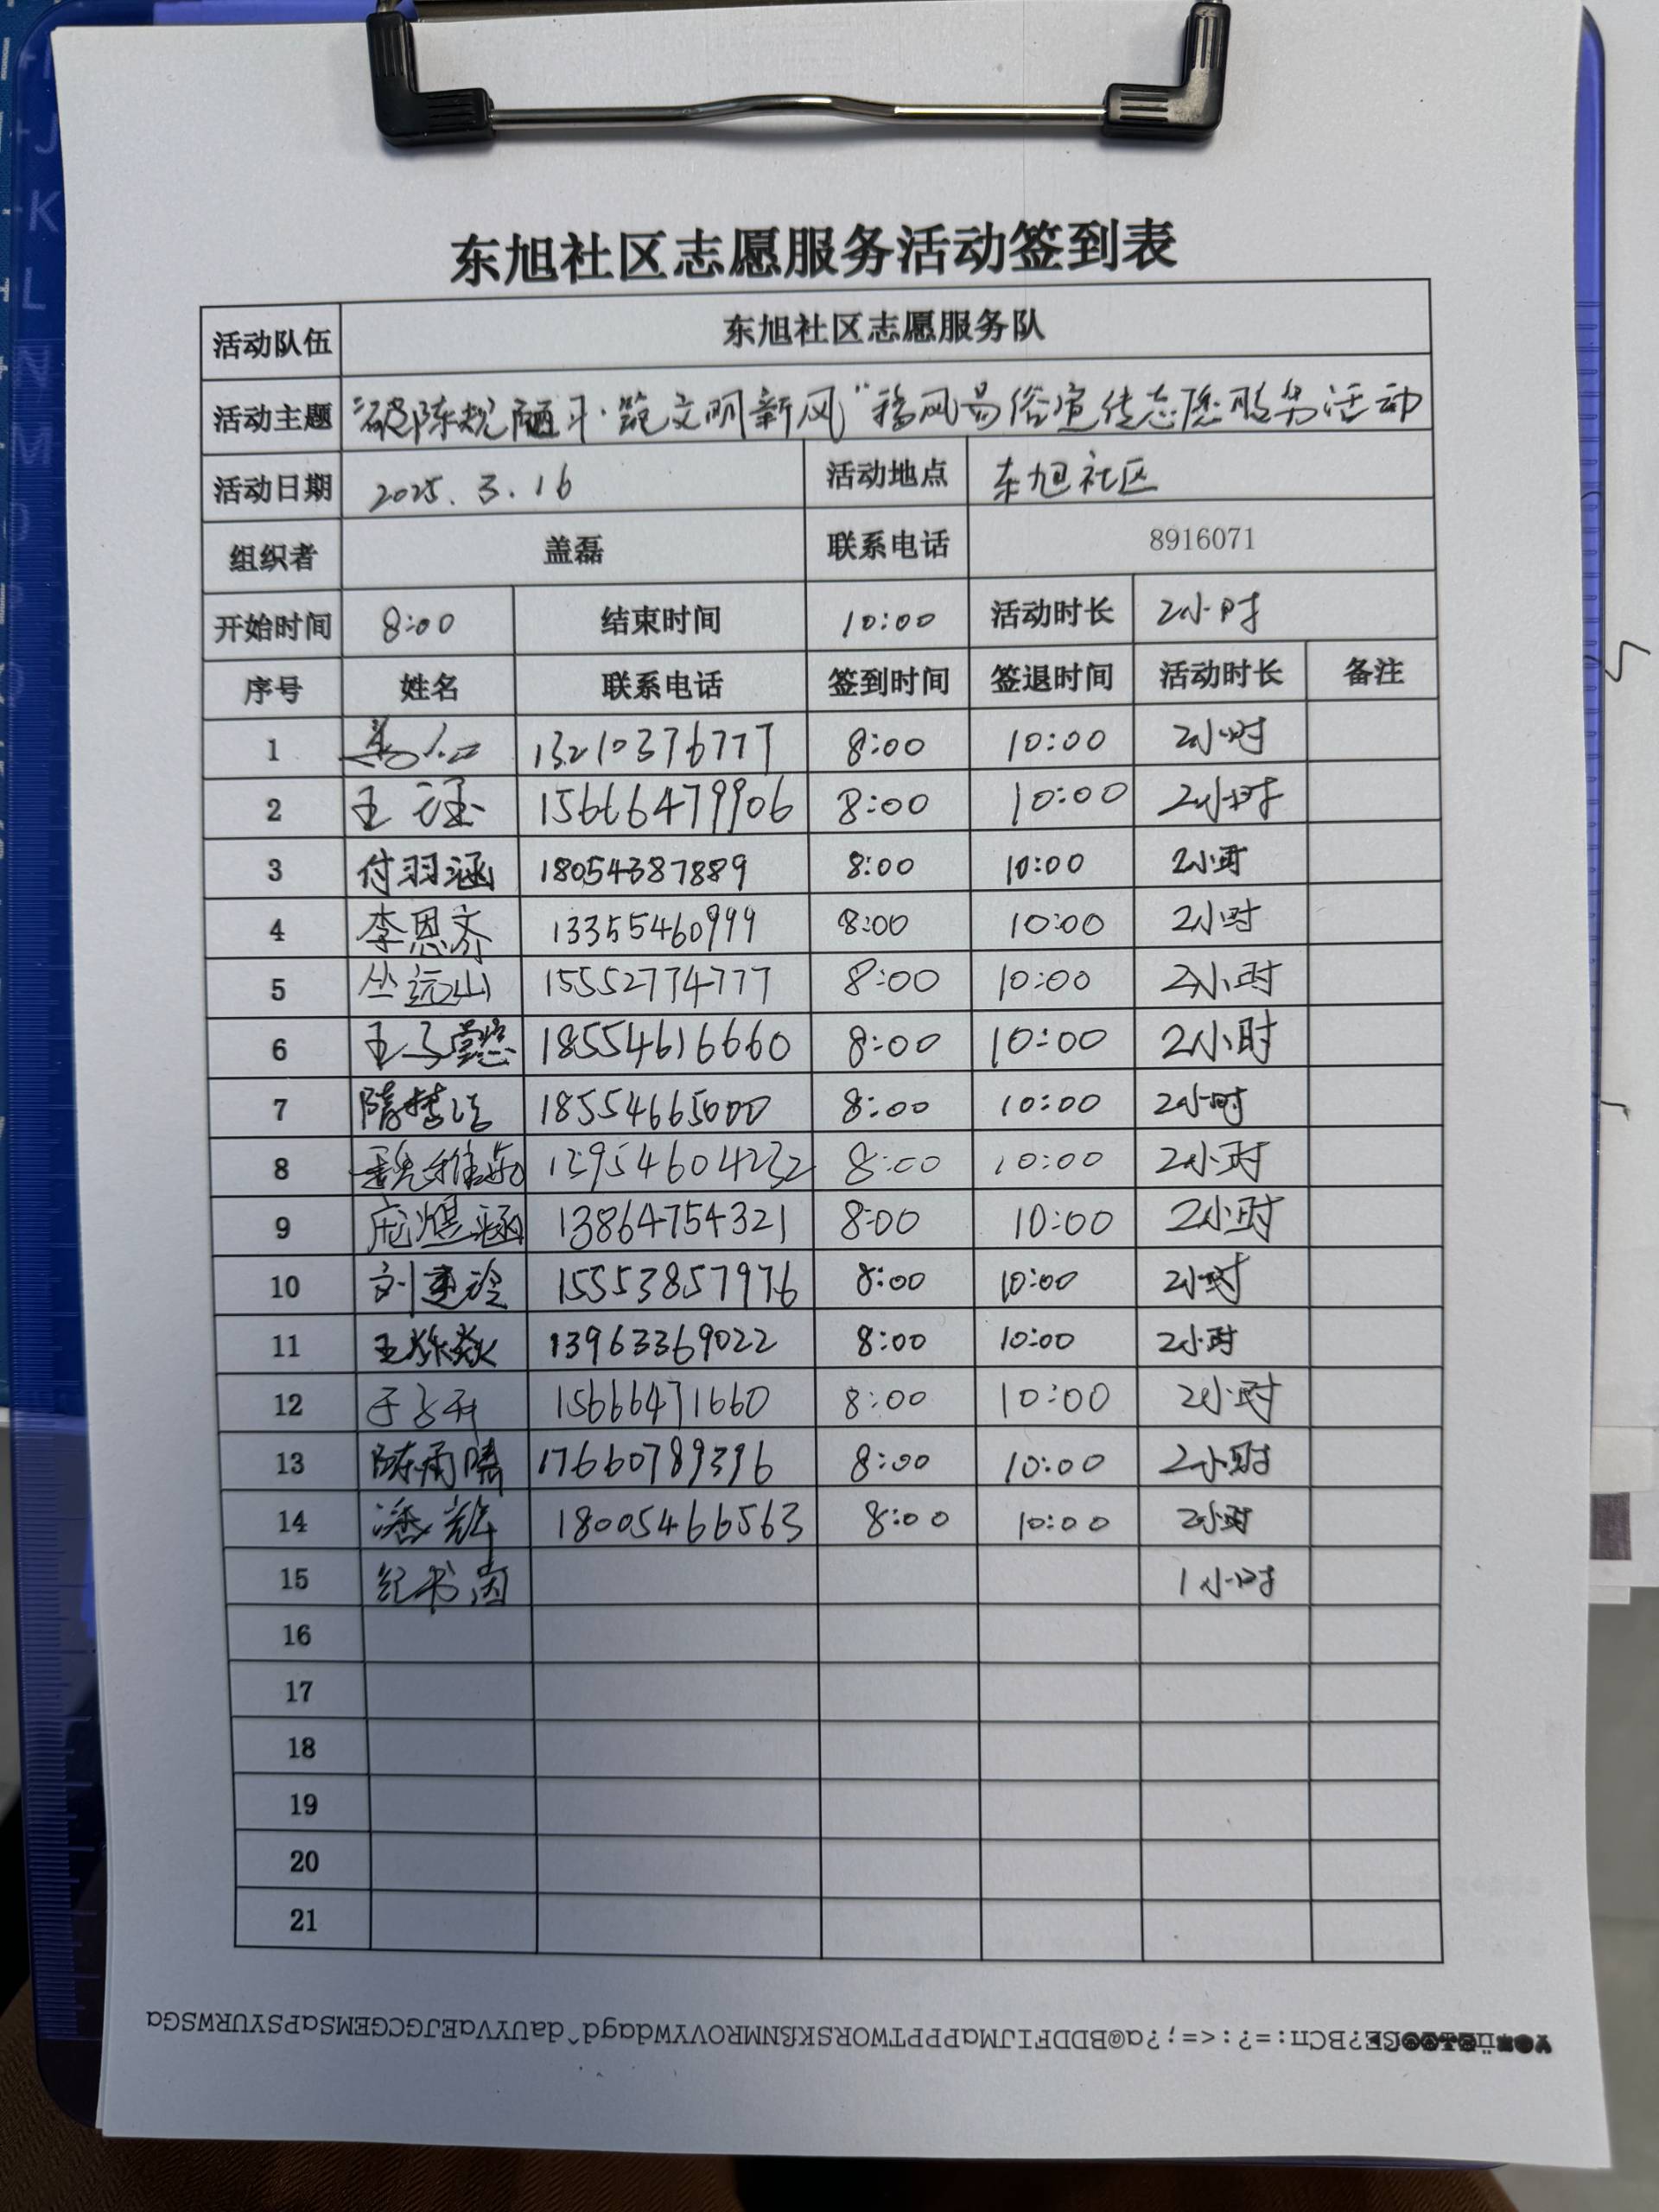 东旭社区志愿服务活动签到表
活动队伍 东旭社区志愿服务队
活动主题 "破陈规陋习·筑文明新风"移风易俗宣传志愿服务活动
活动日期 2025.3.16 活动地点 东旭社区
组织者 盖磊 联系电话 8916071
开始时间 8:00 结束时间 10:00 活动时长 2小时
序号 姓名 联系电话 签到时间 签退时间 活动时长 备注
1 13210376777 8:00 10:00 2小时
2 王 15666479906 8:00 10:00 2小时
3 付羽涵 18054387889 8:00 10:00 2小时
4 李恩齐 13355460999 8:00 10:00 2小时
5 丛远山 15552774777 8:00 10:00 2小时
6 王子懿 18554616660 8:00 10:00 2小时
7 隋 18554665000 8:00 10:00 2小时
8 魏维 13954604232 8:00 10:00 2小时
9 庞煜涵 13864754321 8:00 10:00 2小时
10 刘 15553857976 8:00 10:00 2小时
11 王 焱 13963369022 8:00 10:00 2小时
12 于 15666471660 8:00 10:00 2小时
13 陈雨晴 17660789396 8:00 10:00 2小时
14 潘 18005466563 8:00 10:00 2小时
15 纪书 1小时
16
17
18
19
20
21